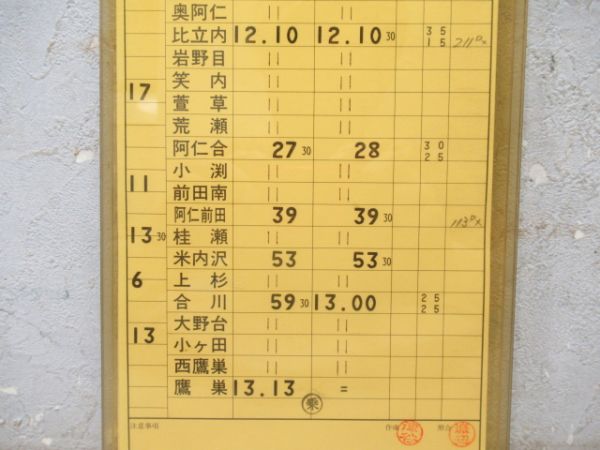 奥阿仁 || ||
比立内 12.10 12.10 30 3 5 211Dx
1 5
岩野目 || ||
17
笑内 || ||
萱草 || ||
荒瀬 || ||
阿仁合 27 30 28 3 0
2 5
小渕 || ||
11
前田南 || ||
阿仁前田 39 39 30 113Dx
13 30
桂瀬 || ||
米内沢 53 53 30
6
上杉 || ||
合川 59 30 13.00 2 5
2 5
13
大野台 || ||
小ヶ田 || ||
西鷹巣 || ||
鷹巣 13.13 =
乗
注意事項 作成 照合 渡辺